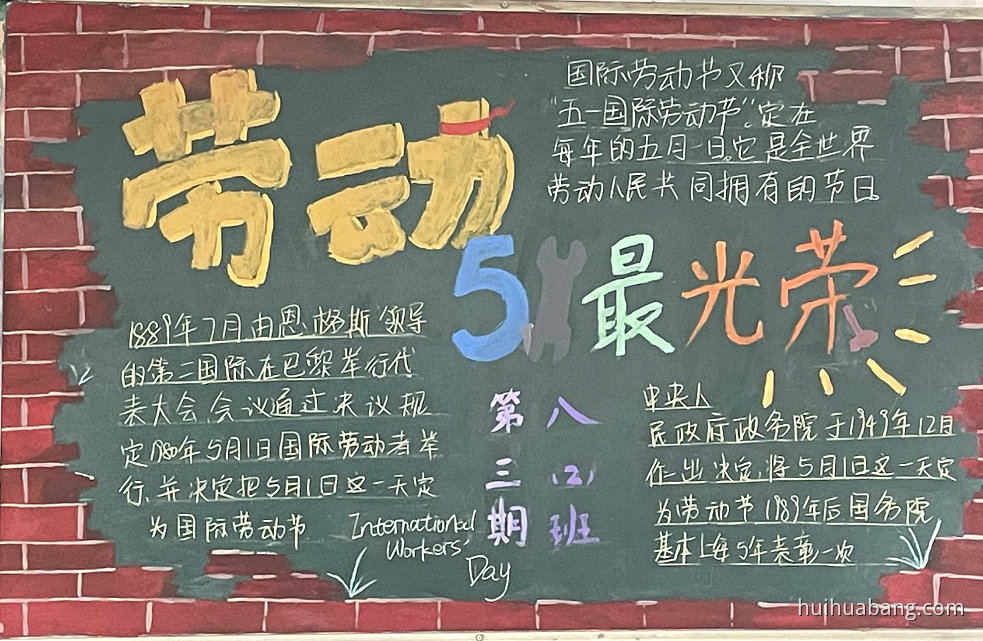 劳动
5 最光荣
国际劳动节又称
“五一国际劳动节”.定在
每年的五月一日。它是全世界
劳动人民共同拥有的节日
1889年7月由恩格斯领导
的第二国际在巴黎举行代
表大会,会议通过决议规
定1980年5月1日国际劳动者举
行,并决定把5月1日这一天定
为国际劳动节
International
Workers'
Day
第三期
八(2)班
中央人
民政府政务院于1949年12月
作出决定,将5月1日这一天定
为劳动节1989年后国务院
基本上每5年表彰一次
huihuabang.com